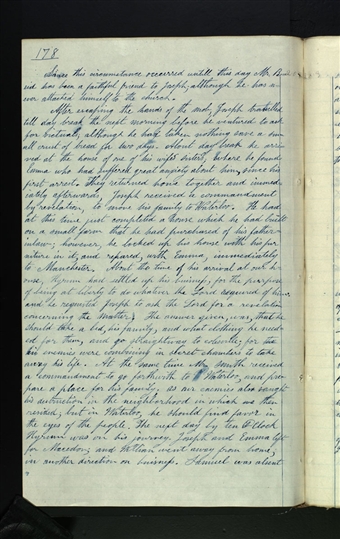 178
Since this circumstance occurred untill this day Mr. 
has been a faithful friend to Joseph, although he has 
attached himself to the church.
After escaping the hands of the mob, Joseph travelled
till day break the next morning before he ventured to ask
for victuals, although he had taken nothing save a 
crust of bread for two days. About day break he arri
ved at the house of one of his wifes sisters, where he found
Emma who had suffered great anxiety about him, since his
first arrest. They returned home together and immed
iately afterwards, Joseph received a commandment
by revelation, to move his family to Waterloo. He had
at this time just completed a house which he had built
on a small farm that he had purchased of his father
inlaw; however, he locked up his house with his fur
niture in it, and repaired, with Emma, immediately
to Manchester. About the time of his arrival at our ho
use, Hyrum had settled up his business, for the purpose
of being at liberty to do whatever the Lord required of him;
and he requested Joseph to ask the Lord for a revelation
concerning the matter. The answer given, was, that he
should take a bed, his family, and what clothing he need
ed for them, and go straightway to Colesville; for the
his enemies were combining in secret chambers to take
away his life. At the same time Mr. Smith received
a commandment to go forthwith to Waterloo, and pre
pare a place for his family, as our enemies also sought
his destruction in the neighborhood in which we then
resided, but in Waterloo, he should find favor in
the eyes of the people. The next day by ten O'Clock
Hyrum was on his journey. Joseph and Emma left
for Macedon; and William went away from home,
in another direction on business. Samuel was absent